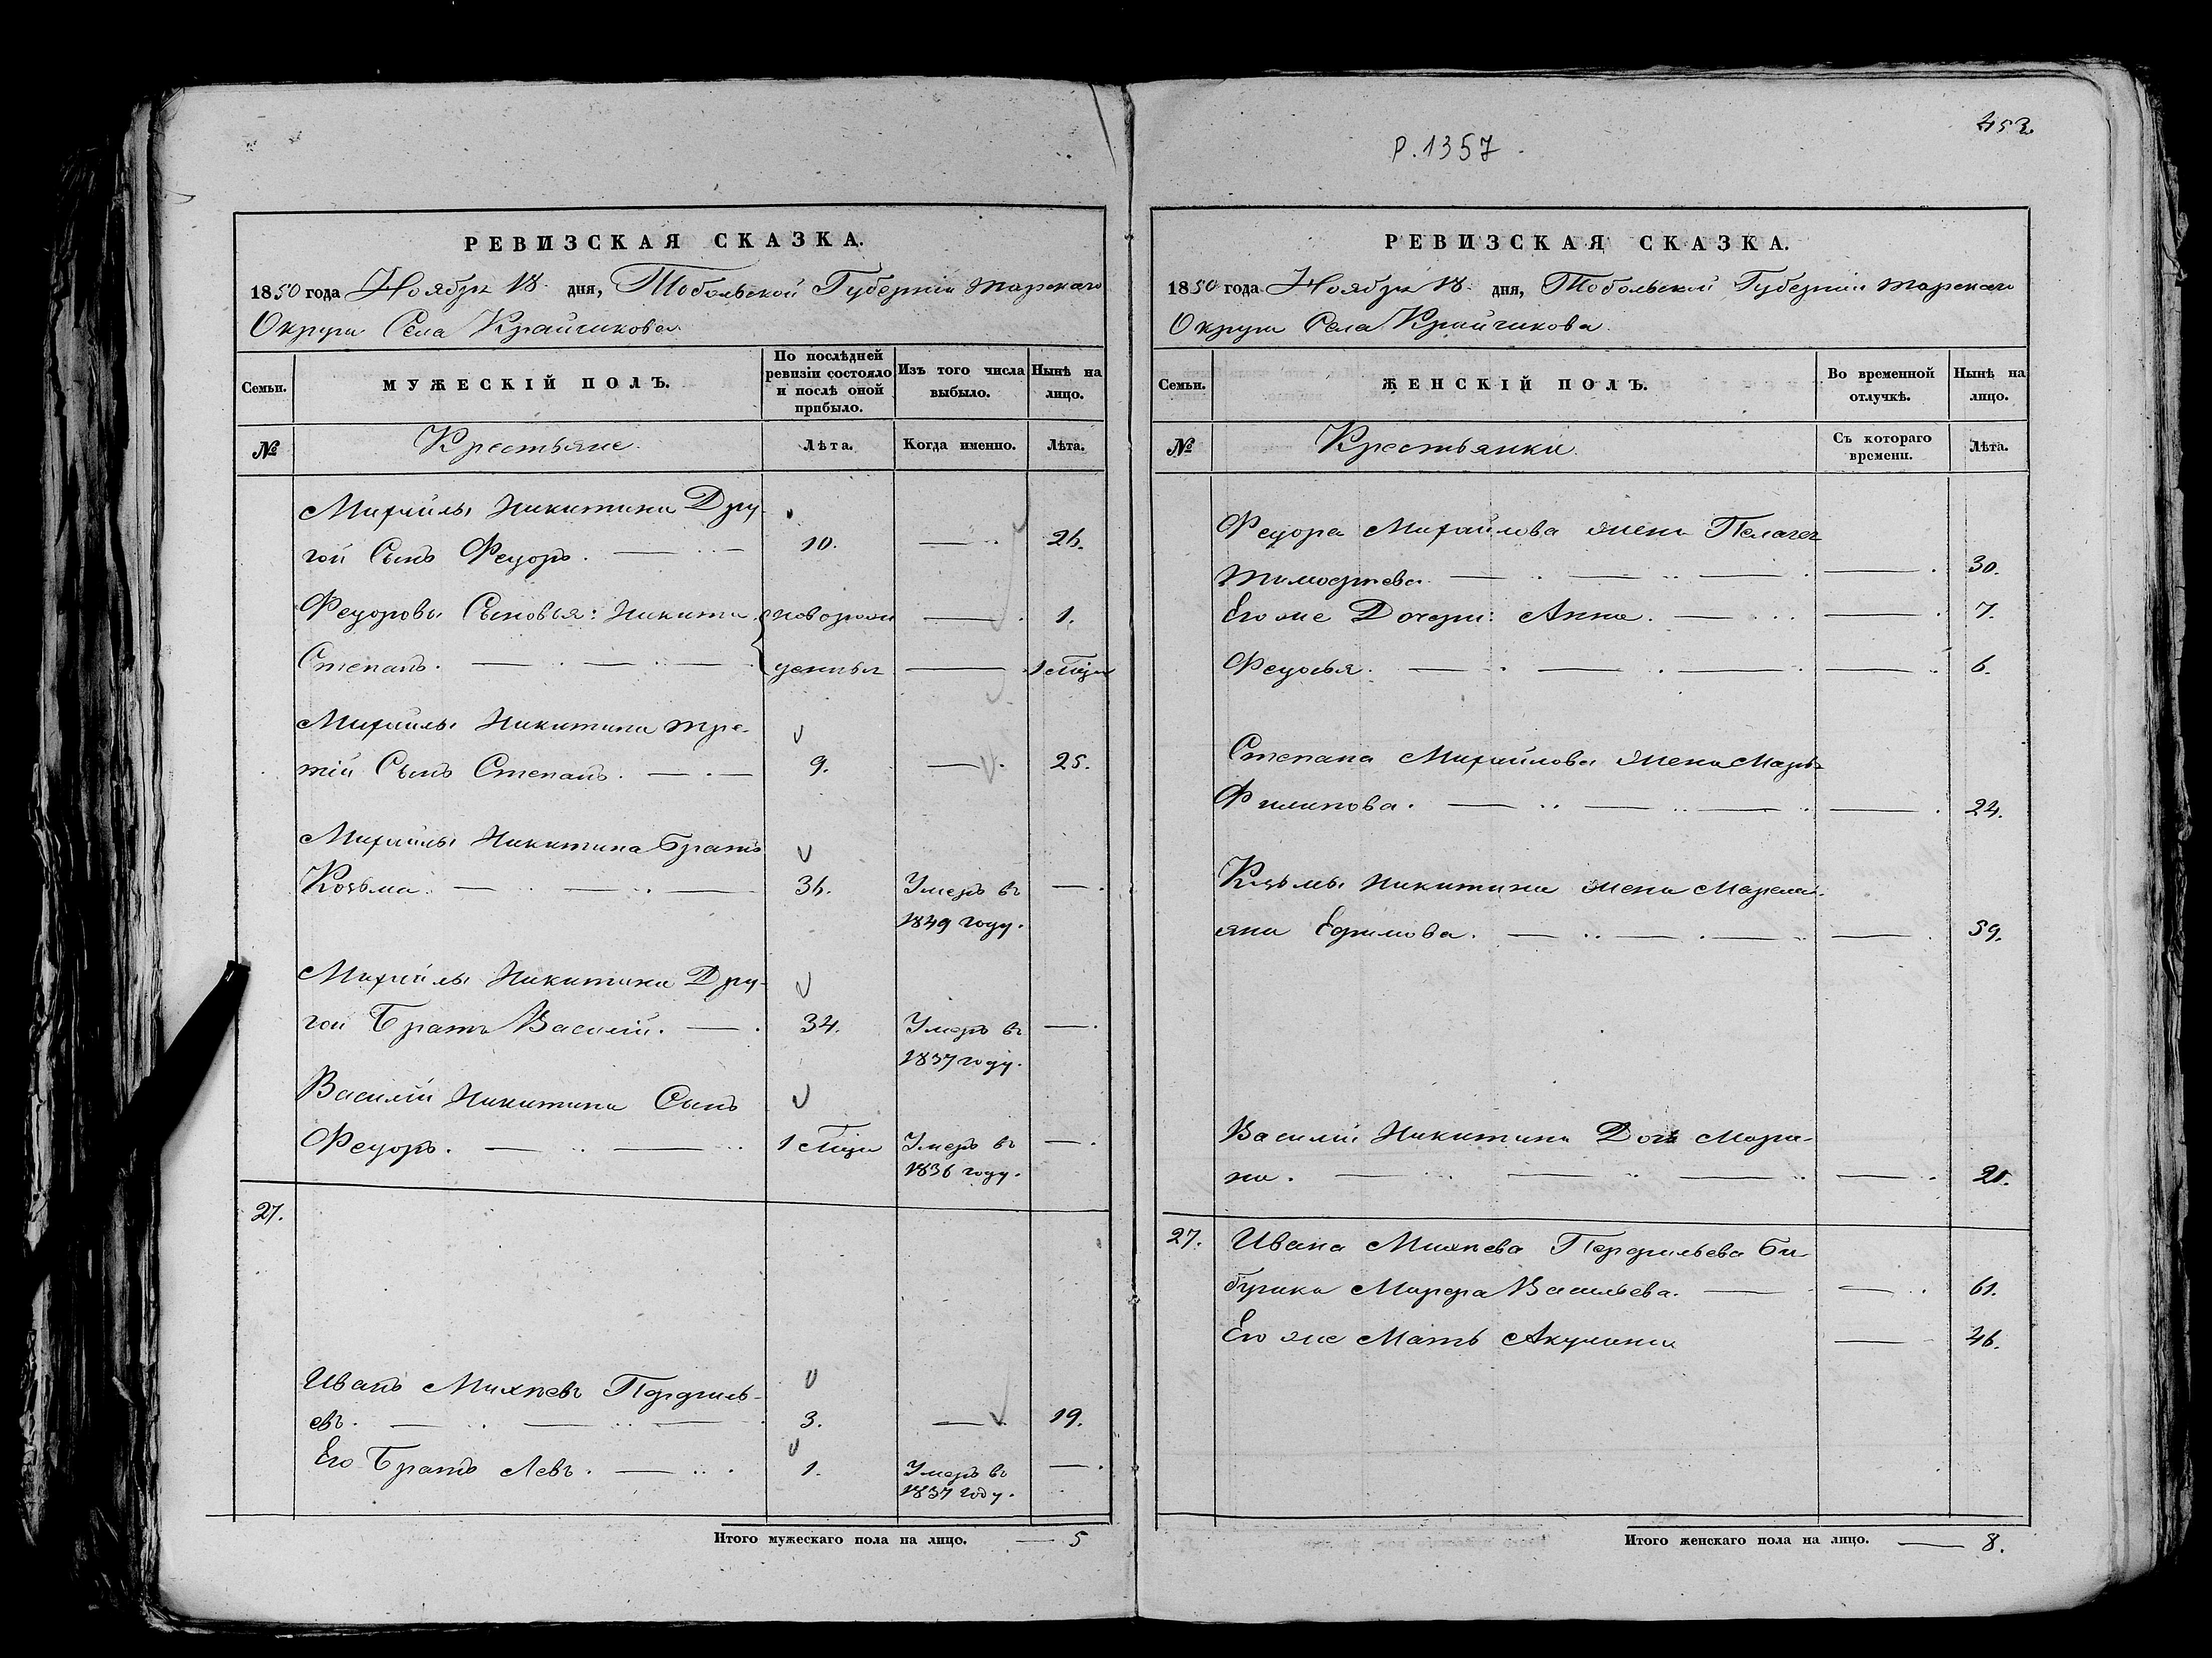 453
Р. 1357.
РЕВИЗСКАЯ СКАЗКА.
1850 года Ноября 18 дня, Тобольской Губернiи Тарскаго
Округа Села Крайчикова
Семьи.
МУЖЕСКІЙ ПОЛЪ.
По послѣдней
ревизіи состояло
и послѣ оной
прибыло.
Изъ того числа
выбыло.
Нынѣ на
лицо.
№
Крестьяне.
Лѣта.
Когда именно.
Лѣта.
Михайлы Никитина Дру-
гой Сынъ Федоръ. 10. 26.
Федоровы Сыновья: Никита новорож 1.
Степанъ. денныя 1 Мѣця
Михайлы Никитина тре-
тій Сынъ Степанъ. 9. 25.
Михайлы Никитина Братъ
Козьма. 36. Умеръ въ
1849 году.
Михайлы Никитина Дру-
гой Братъ Василій. 34. Умеръ въ
1837 году.
Василій Никитина Сынъ
Федоръ. 1 Мѣця Умеръ въ
1836 году.
27.
Иванъ Михѣевъ Перфиль-
евъ. 3. 19.
Его Братъ Левъ. 1. Умеръ въ
1837 году.
Итого мужескаго пола на лицо. 5
РЕВИЗСКАЯ СКАЗКА.
1850 года Ноября 18 дня, Тобольской Губерніи Тарскаго
Округа Села Крайчикова
Семьи.
ЖЕНСКІЙ ПОЛЪ.
Во временной
отлучкѣ.
Нынѣ на
лицо.
№
Крестьянки
Съ котораго
времени.
Лѣта.
Федора Михайлова жена Пелагея
Тимофѣева. 30.
Его же Дочери: Анна. 7.
Федосья. 6.
Степана Михайлова Жена Марья
Филипова. 24.
Козьмы Никитина жена Мареми-
яна Ефимова. 59.
Василій Никитина Дочь Мари-
на. 21.
27. Ивана Михѣева Перфильева Ба-
бушка Марфа Васильева. 61.
Его же Мать Акулина 46.
Итого женскаго пола на лицо. 8.